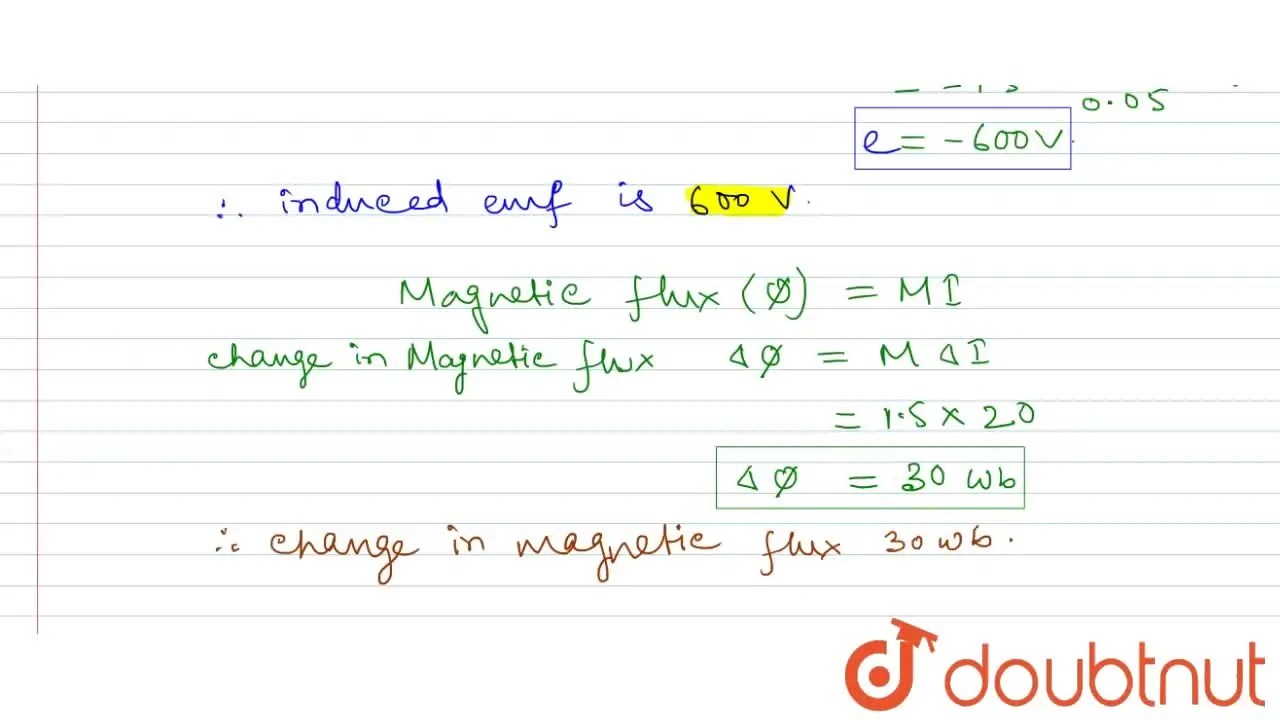 0.05
e = - 600 V.
∴ induced emf is 600 V.
Magnetic flux (ϕ) = M I
change in Magnetic flux Δϕ = M Δ I
= 1.5 × 20
Δϕ = 30 wb
∴ change in magnetic flux 30 wb.
doubtnut